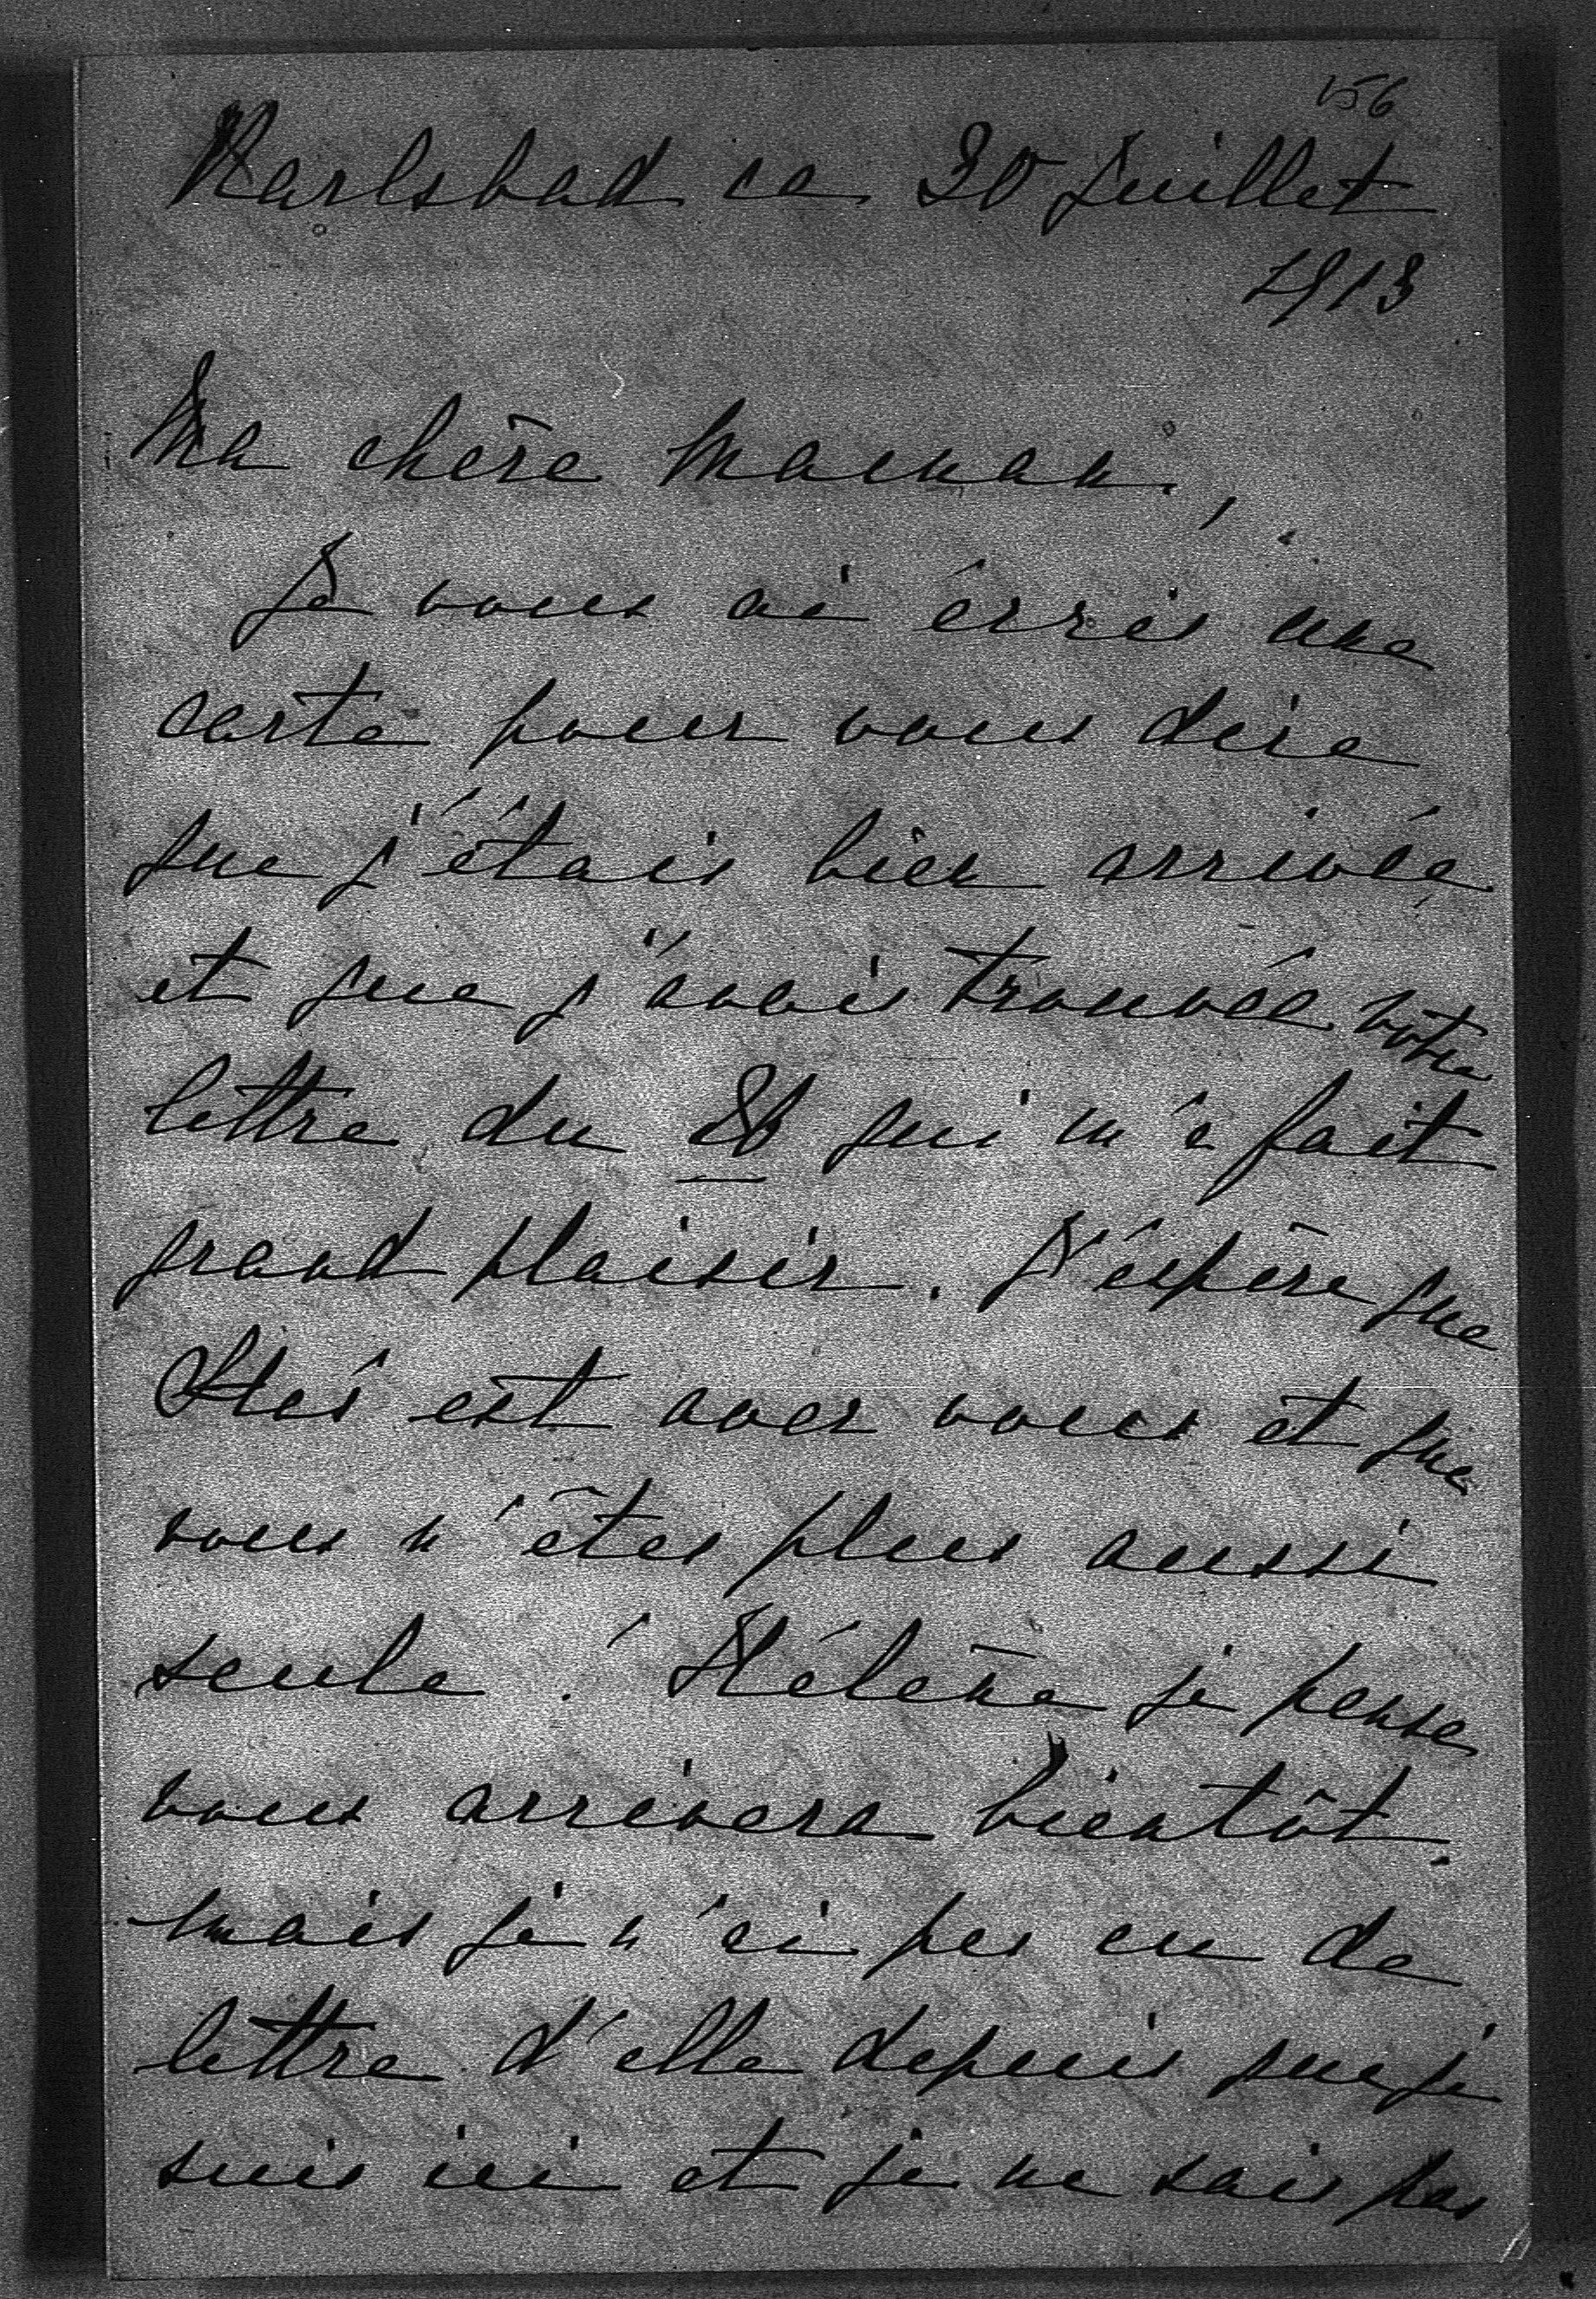 156
Karlsbad ce 30 Juillet
1913
Ma chère Maman,
Je vous ai écris une
carte pour vous dire
que j'étais bien arrivée
et que j'avais trouvée votre
lettre du qui m'a fait
grand plaisir. J'éspère que
est avec vous et que
vous n'êtes plus aussi
seule. Hélène je pense
vous arrivera bientôt.
mais je n'ai pas eu de
lettre d'elle depuis que je
suis ici et je ne sais pas